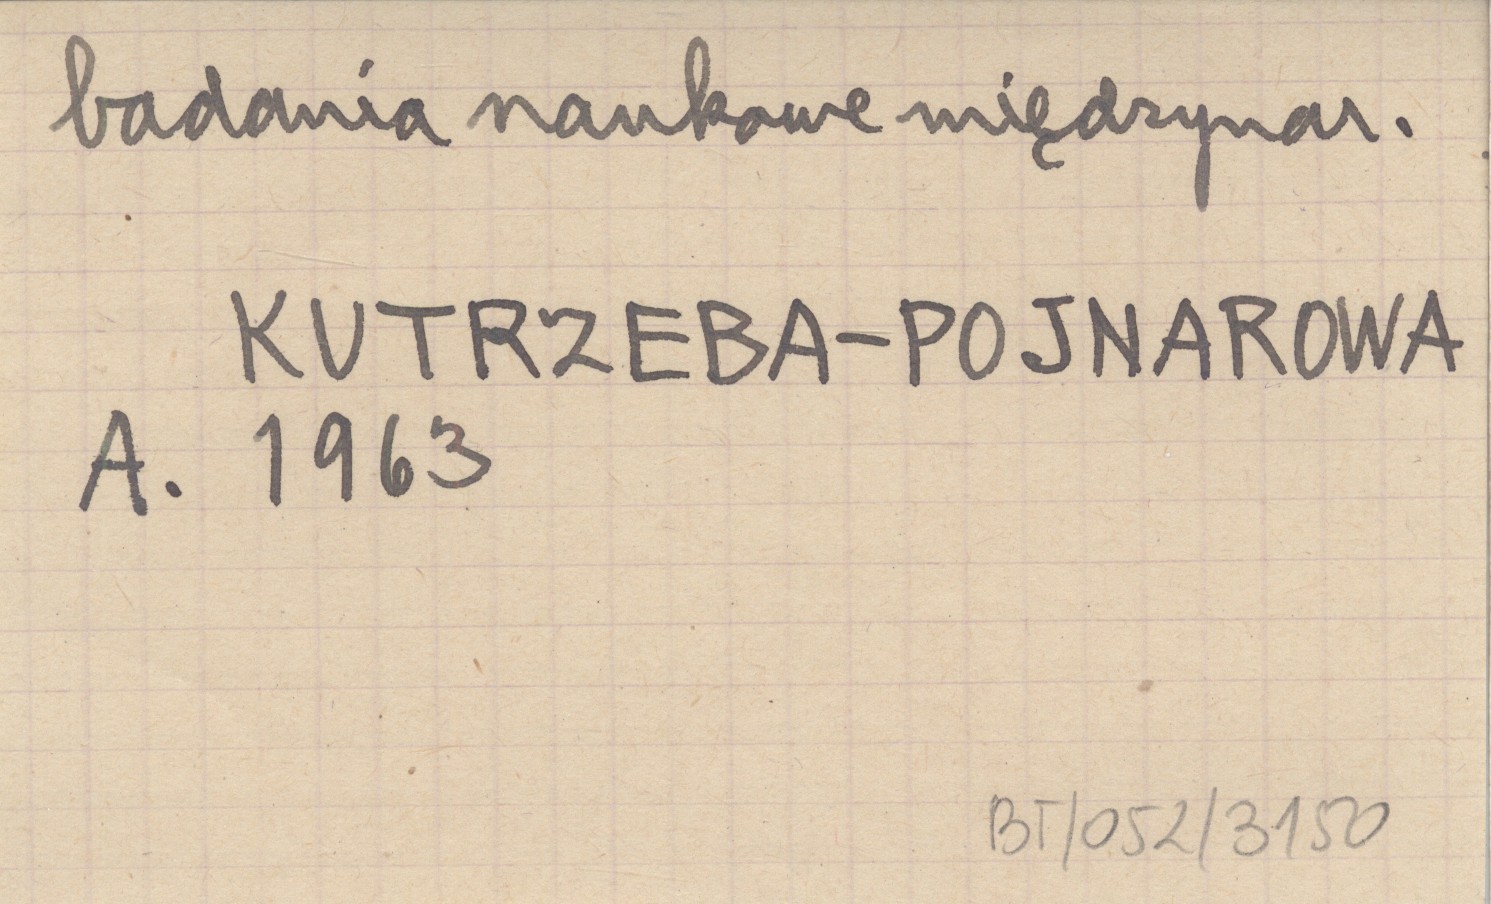 badania naukowe międzynar.
KUTRZEBA-POJNAROWA
A. 1963
BT/052/3150